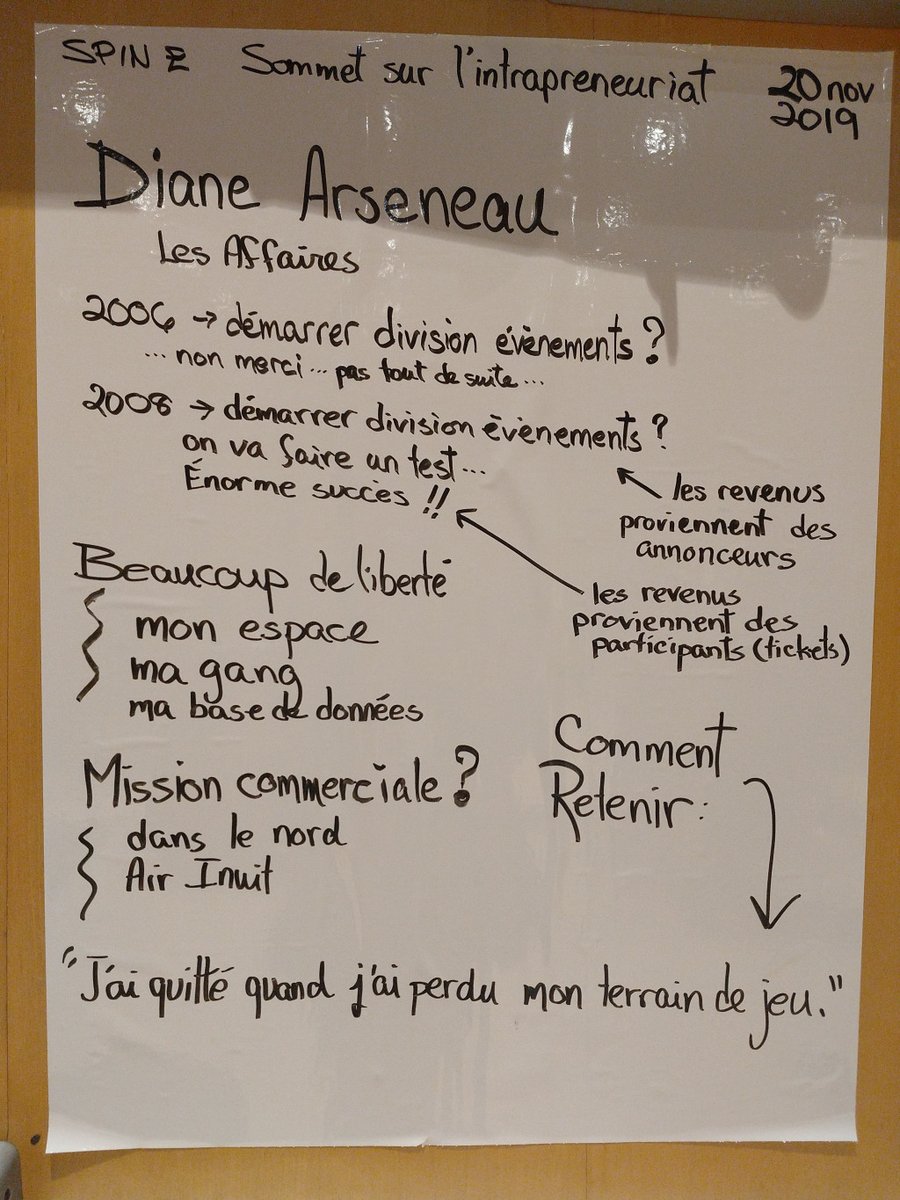 SPIN E Sommet sur l'intrapreneuriat 20 nov 2019
Diane Arseneau
Les Affaires
2006 → démarrer division évènements?
... non merci... pas tout de suite...
2008 → démarrer division évènements?
on va faire un test...
Énorme succès !!
les revenus
proviennent des
annonceurs
les revenus
proviennent des
participants (tickets)
Beaucoup de liberté
mon espace
ma gang
ma base de données
Mission commerciale?
dans le nord
Air Inuit
Comment
Retenir:
"J'ai quitté quand j'ai perdu mon terrain de jeu."